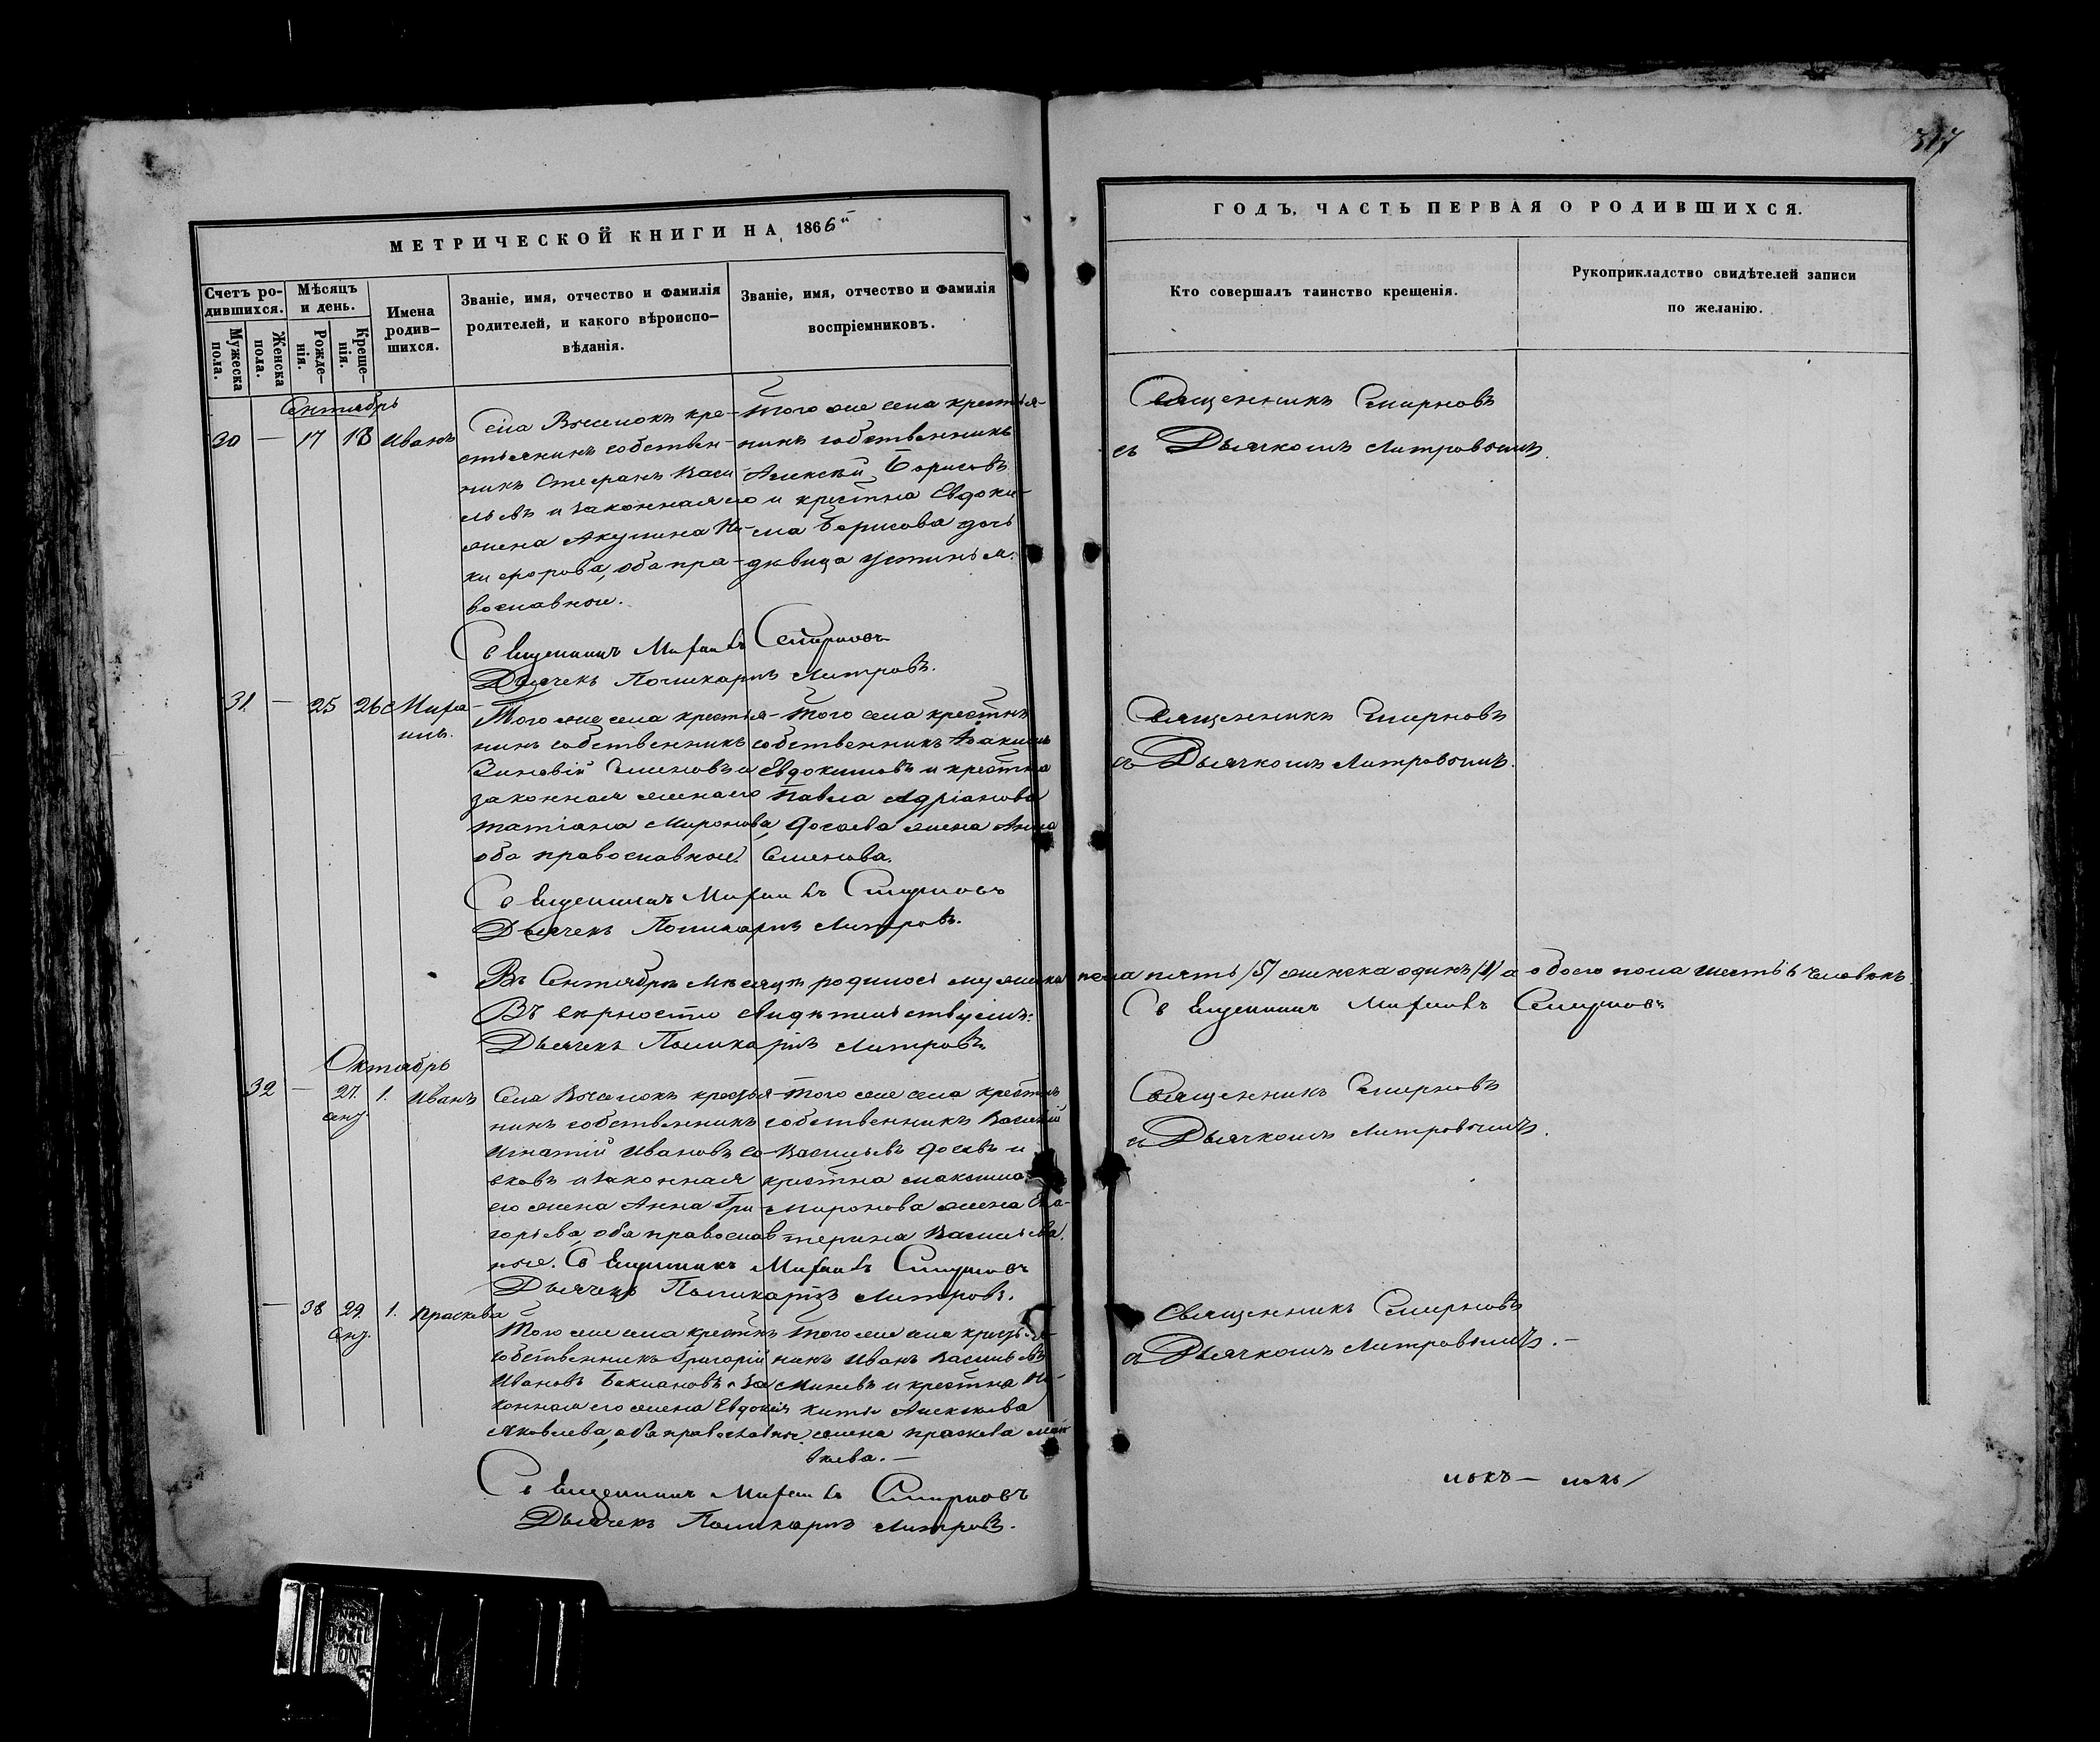 317
МЕТРИЧЕСКОЙ КНИГИ НА 1866й
ГОДЪ, ЧАСТЬ ПЕРВАЯ О РОДИВШИХСЯ.
Счетъ ро-
дившихся.
Мужеска
пола.
Женска
пола.
Мѣсяцъ
и день.
Рожде-
нія.
Креще-
нія.
Имена
родив-
шихся.
Званіе, имя, отчество и фамилія
родителей, и какого вѣроиспо-
вѣданія.
Званіе, имя, отчество и фамилія
воспріемниковъ.
Кто совершалъ таинство крещенія.
Рукоприкладство свидѣтелей записи
по желанію.
Сентябрь
30 — 17 18 Иванъ
Села Выселокъ кре-
стьянинъ собствен-
никъ Стефанъ Васи-
льевъ и законная его
жена Акулина Ни-
кифорова, оба пра-
вославное.
Того же села крестья-
нинъ собственникъ
Алексѣй Борисовъ
и крестна Евдоки-
ма Борисова дочь
дѣвица Устинья.
Священникъ Смирновъ
съ Дьячкомъ Митровымъ.
Священникъ Михаилъ Смирновъ
Дьячекъ Поликарпъ Митровъ.
31. — 25 26 Миха-
илъ.
Того же села крестья-
нинъ собственникъ
Зиновій Семеновъ и
законная жена его
Татіана Миронова,
оба православное.
Того села крестнъ
собственникъ Іакимъ
Евдокимовъ и крестна
Павла Адріанова
жена Анна
Семенова.
Священникъ Смирновъ
съ Дьячкомъ Митровымъ.
Священникъ Михаилъ Смирновъ
Дьячекъ Поликарпъ Митровъ.
Въ Сентябрѣ Мѣсяцѣ родилось мужеска пола пять /5/ женска одинъ /1/ а обоего пола шесть 6 человѣкъ.
Въ вѣрности свидѣтельствуемъ:
Священникъ Михаилъ Смирновъ
Дьячекъ Поликарпъ Митровъ
Октябрь
32 — 27. 1. Иванъ
сент.
Села Выселокъ крестья-
нинъ собственникъ
Игнатій Ивановъ Со-
ековъ и законная
его жена Анна Гри-
горьева, оба православ-
ное.
Того же села крестнъ
собственникъ Василій
Васильевъ и
крестна Максима
Миронова жена Ека-
терина Васильева.
Священникъ Смирновъ
съ Дьячкомъ Митровымъ.
Священникъ Михаилъ Смирновъ
Дьячекъ Поликарпъ Митровъ.
— 38 29. 1. Праскева
Сент.
Того же села крестнъ
собственникъ Григорій
Ивановъ Бакланов и за
конная его жена Евдокія
Яковлева, оба православное
Того же села крестья-
нинъ Иванъ Васильевъ
Минеевъ и крестна Ни-
киты Алексѣева
жена Праскева Мат-
вѣева. —
Священникъ Смирновъ
съ Дьячкомъ Митровымъ. —
Священникъ Михаилъ Смирновъ
Дьячекъ Поликарпъ Митровъ.